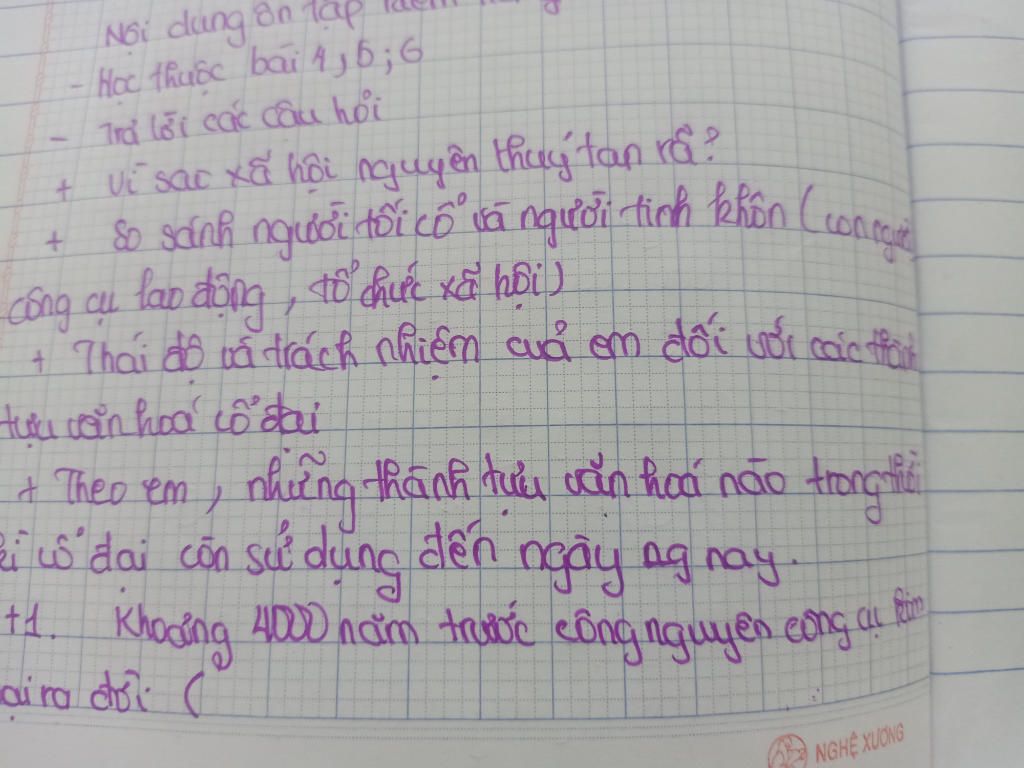 Nội dung ôn tập
- Học thuộc bài 4, 5; 6
- Trả lời các câu hỏi
+ Vì sao xã hội nguyên thuỷ tan rã?
+ So sánh người tối cổ và người tinh khôn (con người
công cụ lao động, tổ chức xã hội)
+ Thái độ và trách nhiệm của em đối với các thành
tựu văn hoá cổ đại
+ Theo em, những thành tựu văn hoá nào trong thời
kì cổ đại còn sử dụng đến ngày ng nay.
+1. Khoảng 4000 năm trước công nguyên công cụ kim
oại ra đời. (
NGHỆ XƯƠNG